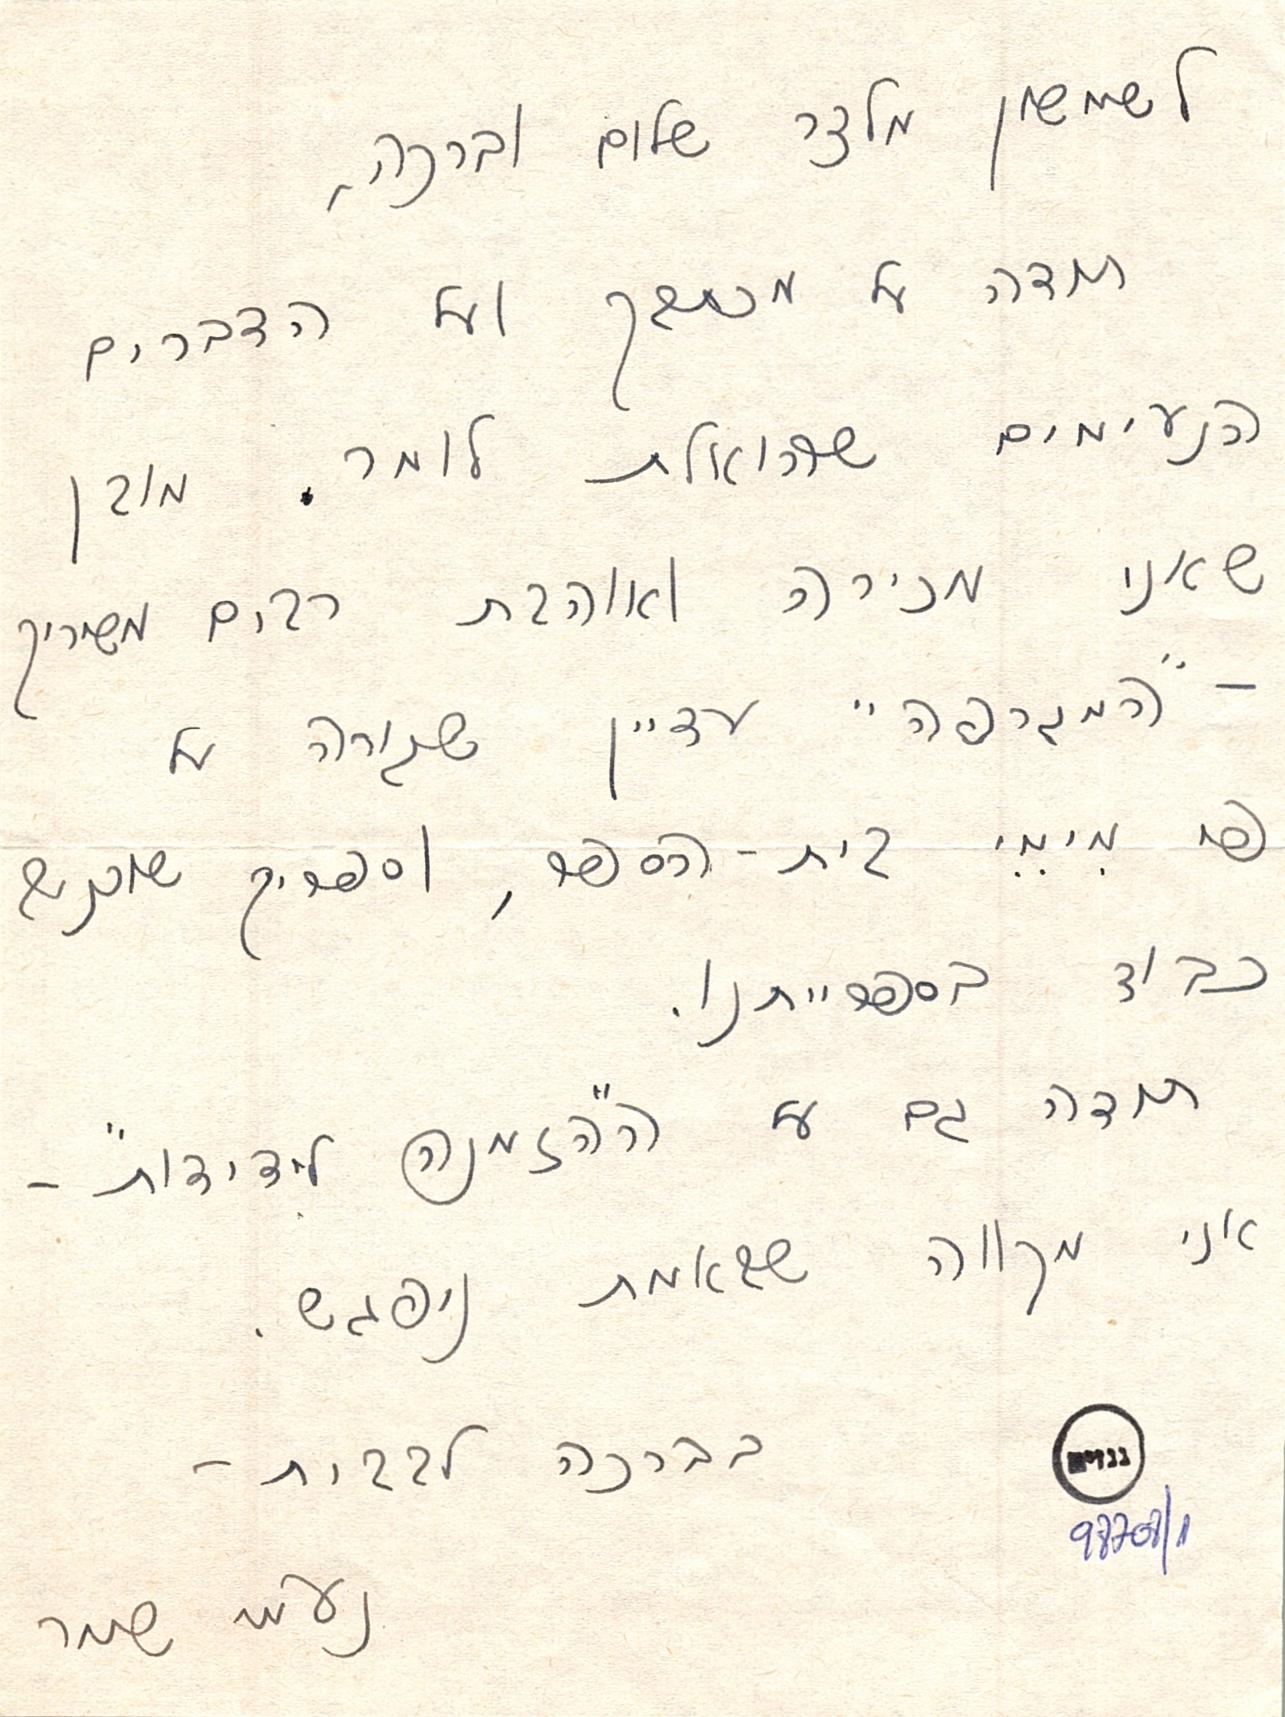 לשמשון מלצר שלום וברכה,
תודה על מכתבך ועל הדברים
הנעימים שהואלת לומר. מובן
שאני מכירה ואוהבת רבים משיריך
- "המגרפה" עדיין שגורה על
פי מִימֵי בית-הספר, וספריך שוכנים
כבוד בספרייתנו.
תודה גם על ה"הזמנה לידידות" -
אני מקווה שבאמת ניפגש.
בברכה לבבית -
נעמי שמר
גנזים
98708/1